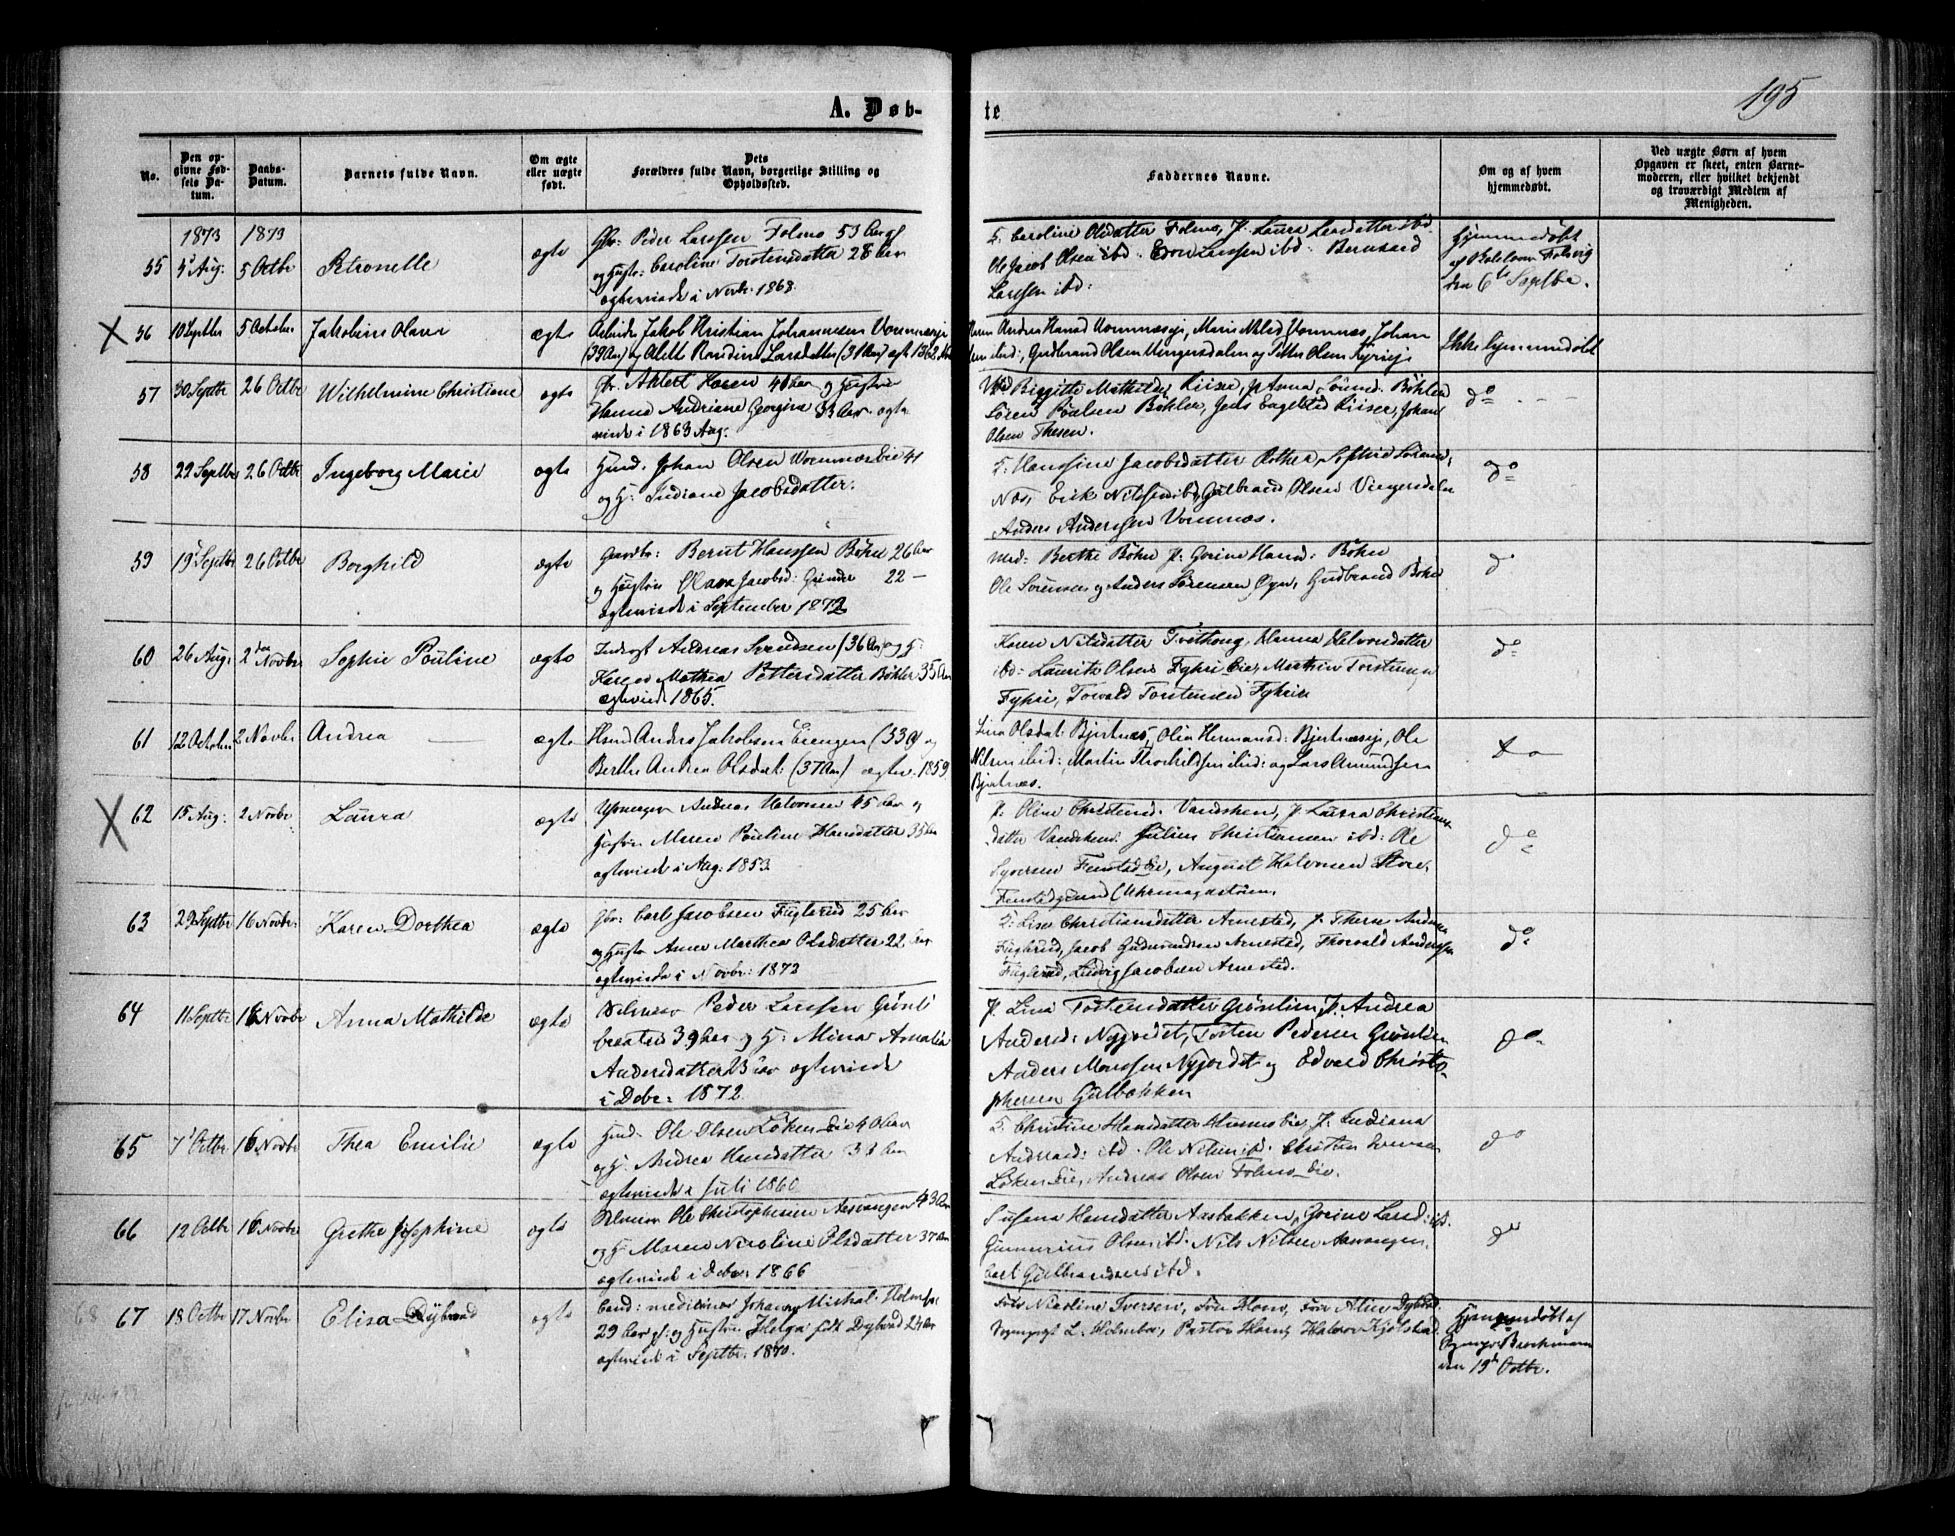 195
A. Døb-
te
No.
Den op-
givne Fød-
sels Da-
tum.
Daabs-
Datum.
Barnets fulde Navn.
Om ægte
eller uægte
født.
Dets
Forældres fulde Navn, borgerlige Stilling og
Opholdssted.
Faddernes Navne.
Om og af hvem
hjemmedøbt.
Ved uægte Børn af hvem
Opgaven er skeet, enten Barne-
moderen, eller hvilket bekjendt
og troværdigt Medlem af
Menigheden.
1873 1873
55 5 Aug: 5 Octbr Petronelle ægte
Gbr: Peder Larssen Folmo 53 Aar
og Hustr: Caroline Torstensdatter 28 Aar
ægteviede i Novbr: 1868.
Caroline Olsdatter Folmo, P. Laura Larsdatter ibd.
Ole Jacob Olsen ibd: Edvin Larssen ibd: Bernhard
Larssen ibd:
Hjemmedøbt
den 6te Septbr.
X 56 10 Septbr 5 October Jakobine Olava ægte
Jakob Kristian Johannesen Vommnæsie
(39 Aar) og Olette Rondine Larsdatter (31 Aar) ægt. 1862
Maren Andrea Hansd Vommnæsie, Marie Nilsd Vommnæs, Johan
ibid:, Gudbrand Olsen Vingersdalen og Petter Olsen
Ikke hjemmedøbt
57 30 Septbr 26 Octbr Wilhelmine Christiane ægte
Gbr. Ahlert Horen 40 Aar og Hustru
Hanna Andriane Georgina 33 Aar ægte
viede i 1863 Aug:
Birgitte Mathilde Kiise, P. Anna Sørensd. Bøhler
Søren Poulsen Bøhler, Jens Engelstad Kiise, Johan
Olsen Thesen.
do
58 22 Septbr 26 Octbr Ingeborg Marie ægte
Husmd. Johan Olsen Vommnæseie 41
og H: Indiane Jacobsdatter:
Hanssine Jacobsdatter Rothea, Sophie Sørensd:
Næs, Erik Nilssen ibd, Gulbrand Olsen Vingersdalen
Anders Anderssen Vommnæs.
do
59 19 Septbr 26 Octbr Borghild ægte
Gaardbr: Bernt Hanssen Bøhn 26 Aar
og Hustru Olava Jacobsd: Grinder 22 –
ægteviede i September 1872
Mad: Berthe Bøhn P: Gorine Hansd: Bøhn
Ole Sørensen og Anders Sørensen Gudbrand Bøhn
do
60 26 Aug: 2den Novbr Sophie Pouline ægte
Inderst Andreas Svendsen (36 Aar) og H:
Karen Mathea Pettersdatter Bøhler 35 Aar
ægteviede 1865.
Karen Nilsdatter Tvethoug, Hanna Halvorsdatter
ibd: Lauritz Olsen Fyhri Eie, Martin Torstensen
Fyhri, Torvald Torstensen Fyhrie
do
61 12 October 2 Novbr Andrea ægte
Husmd Anders Jakobsen Eiengen (53 Aar) og
Berthe Andrea Olsdat: (37 Aar) ægtev: 1859
Lina Olsdat: Bjertnæs, Olia Hermansd: Bjertnæseje, Ole
Nilsen ibid:, Martin Thorkildsen ibid: og Lars Amundsen
Bjertnæs.
X 62 15 Aug: 2 Novbr Laura ægte
Andreas Halvorsen 45 Aar og
Hustru Maren Pouline Hansdatter 35 Aar
ægteviede i Aug: 1853.
P. Oline Christensd. Vandsken, P. Laura Christians
datter Vandsken. Julius Christiansen ibd: Ole
Syversen Fenstad Eie, August Halvorsen Store
Fenstadgsund
do
63 29 Septbr 16 Novbr: Karen Dorthea ægte
Gbr: Carl Jacobsen Fuglerud 25 Aar
og Hustru Anne Marthea Olsdatter 22 Aar
ægteviede i Novbr: 1872
Lise Christiansdatter Arnestad, P. Therese Anders
Fuglerud, Jacob Gudmundsen Arnestad, Thorvald Anderssen
Fuglerud, Ludvig Jacobsen Arnestad.
do
64 11 Septbr 16 Novbr Anna Mathilde ægte
Selveier Peder Larssen Grønli
39 Aar og H: Mina Amalia
Andersdatter 23 Aar ægteviede
i Debr: 1872
P. Lina Torstensdatter Grønlien, P. Andrea
Andersd: Nyjordet, Torsten Pedersen Grønlien
Anders Monssen Nyjordet og Edvard Christo-
phersen Gulbakken
do
65 7 Octbr 16 Novbr Thea Emilie ægte
Husmd. Ole Olsen Løken Eie 40 Aar
og H: Andrea Hansdatter 38 Aar
ægteviede i Juli 1860
Christine Hansdatter Eie, P. Indiana
Andersd: ibd. Ole Nilsen ibd. Christian Iversen
Løken Eie, Andreas Olsen Folmo Eie.
do
66 12 Octbr 16 Novbr Grethe Josephine ægte
Selveier Ole Christophersen Aasvangen 43 Aar
og H: Maren Nicoline Olsdatter 37 Aar
ægteviede i Debr 1866
Susana Hansdatter Aasbakken, Gorine Larsd: ibd.
Gunnerius Olsen ibd. Nils Nilsen Aasvangen,
Carl Gulbrandsen ibd.
do
68 67 18 Octbr 17 Novbr Elisa Dybvad ægte
Cand: medicinæ Johan Michal Holmboe
29 Aar gl: og Hustru Helga født Dybvad 24 Aar
ægteviede i Septbr: 1870.
Frøk Nicoline Iversen, Fru Horn, Frøk Alin Dybvad.
Sogneprst L. Holmboe, Pastor Horn, Halvor Kjølstad.
Hjemmedøbt af
Brockmann
den 19de Octbr.